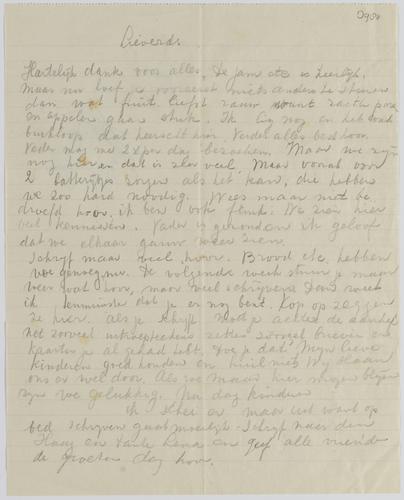 Lieverds
Hartelijk dank voor alles. De jam etc is heerlijk,
Maar nu hoef je voorerst niets anders te sturen
dan wat fruit liefst rauw want zachte
en appelen gaan stuk. Ik lig nog en het
dat heerscht hier. Verder alles best hoor.
Vader mag me 2x per dag bezoeken. Maar we zijn
nog hier en dat is zeer veel. Maar vooral voor
2 zorgen als het kan, die hebben
we zoo hard noodig. Wees maar niet be-
droefd hoor, ik ben ook flink. We zien hier
veel kennissen. Vader is gezonden ik geloof
dat we elkaar gauw weer zien.
Schrijf maar veel hoor. Brood etc. hebben
we genoeg nu. De volgende week stuur je maar
weer wat hoor, maar veel schrijven. Dan weet
ik tenminste dat je er nog bent. Kop op zeggen
ze hier. als je schrijft moet je achter de
Net zooveel zetten zooveel brieven en
kaarten je al gehad hebt. Doe je dat? Mijn lieve
kinderen goed houden en huil niet Wij slaan
ons er wel door. Als we maar hier mogen blijven
zijn we gelukkig. Nu dag kinderen
Ik er maar uit want op
bed schrijven gaat moeilijk. Schrijf naar den
Haag en tante Lena en geef alle vrienden
de groeten dag hoor.